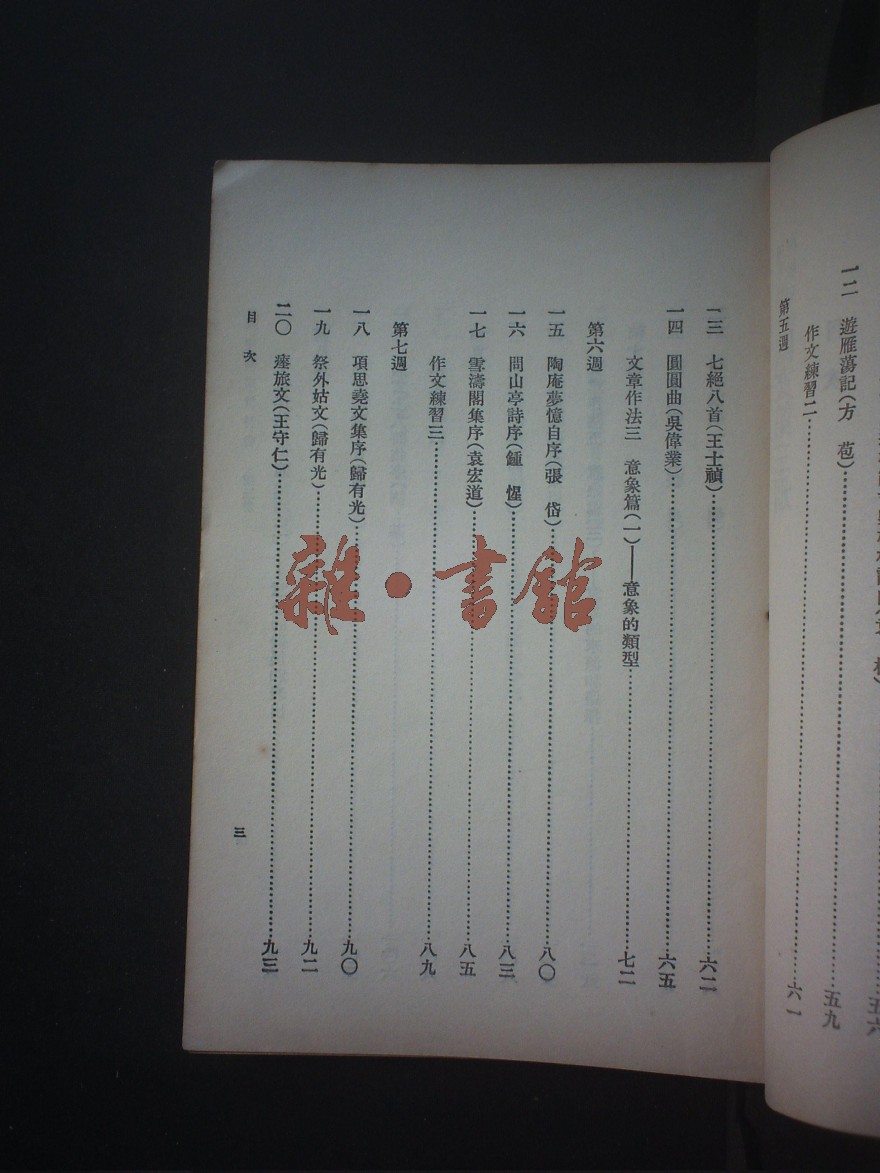 一二　遊雁蕩記（方　苞）……五九
作文練習二……六一
第五週
一三　七絕八首（王士禎）……六二
一四　圓圓曲（吳偉業）……六五
文章作法三　意象篇（一）——意象的類型……七二
第六週
一五　陶庵夢憶自序（張　岱）……八〇
一六　問山亭詩序（鍾　惺）……八三
一七　雪濤閣集序（袁宏道）……八五
作文練習三……八九
第七週
一八　項思堯文集序（歸有光）……九〇
一九　祭外姑文（歸有光）……九二
二〇　瘞旅文（王守仁）……九三
目　次
三
雜·書館